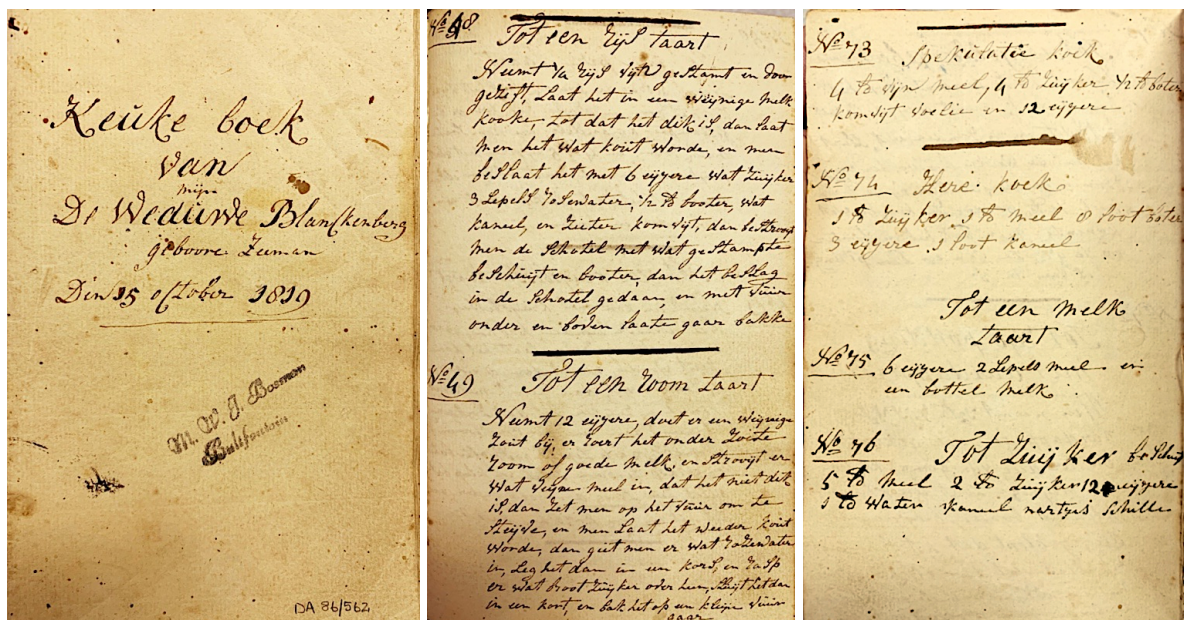 Keuke boek
van
mijn
De Weduwe Blanckenberg
geboore Zeeman
Den 15 october 1819
M. W. J. Bosman
Bultfontein
DA 86/562
No 48
Tot een Rijs taart
Neemt ½ Rijs fijn gestampt en door
gezift, Laat het in een weijnige melk
kooke, tot dat het dik is, dan laat
men het wat kout worde, en men
beslaat het met 6 eijjere wat zuijker
3 Lepels Rosewater, ½ lb booter, wat
kaneel, en komfijt, dan bestrooijt
men de schotel met wat gestampte
beschuijt en booter, dan het beslag
in de schotel gedaan, en met vuur
onder en boven laate gaar bakke
No 49
Tot een room taart
Neemt 12 eijjere, doet er een weijnige
Zout bij, er roert het onder Zoete
room of goede melk, en strooijt er
wat meel in, dat het niet dik
is, dan zet men op het vuur om te
en men laat het weeder kout
worde, dan giet men er wat rosewater
in, Leg het dan in een kors, en rasp
er wat broot zuijker over heen, het dan
in een kort, en bak het op een kleijn vuur
gaar
No 73 Spekulatie koek
4 lb fijn meel, 4 lb zuijker ½ lb boter
komfijt foelie en 12 eijjere
No 74 Here koek
1 lb zuijker 1 lb meel 8 loot boter
3 eijjere 1 loot kaneel
Tot een melk
taart
No 75 6 eijjere 2 Lepels meel en
een bottel melk
No 76 Tot Zuijker beschuijt
5 lb meel 2 lb zuijker 12 eijjere
1 lb water kaneel nartjes schille